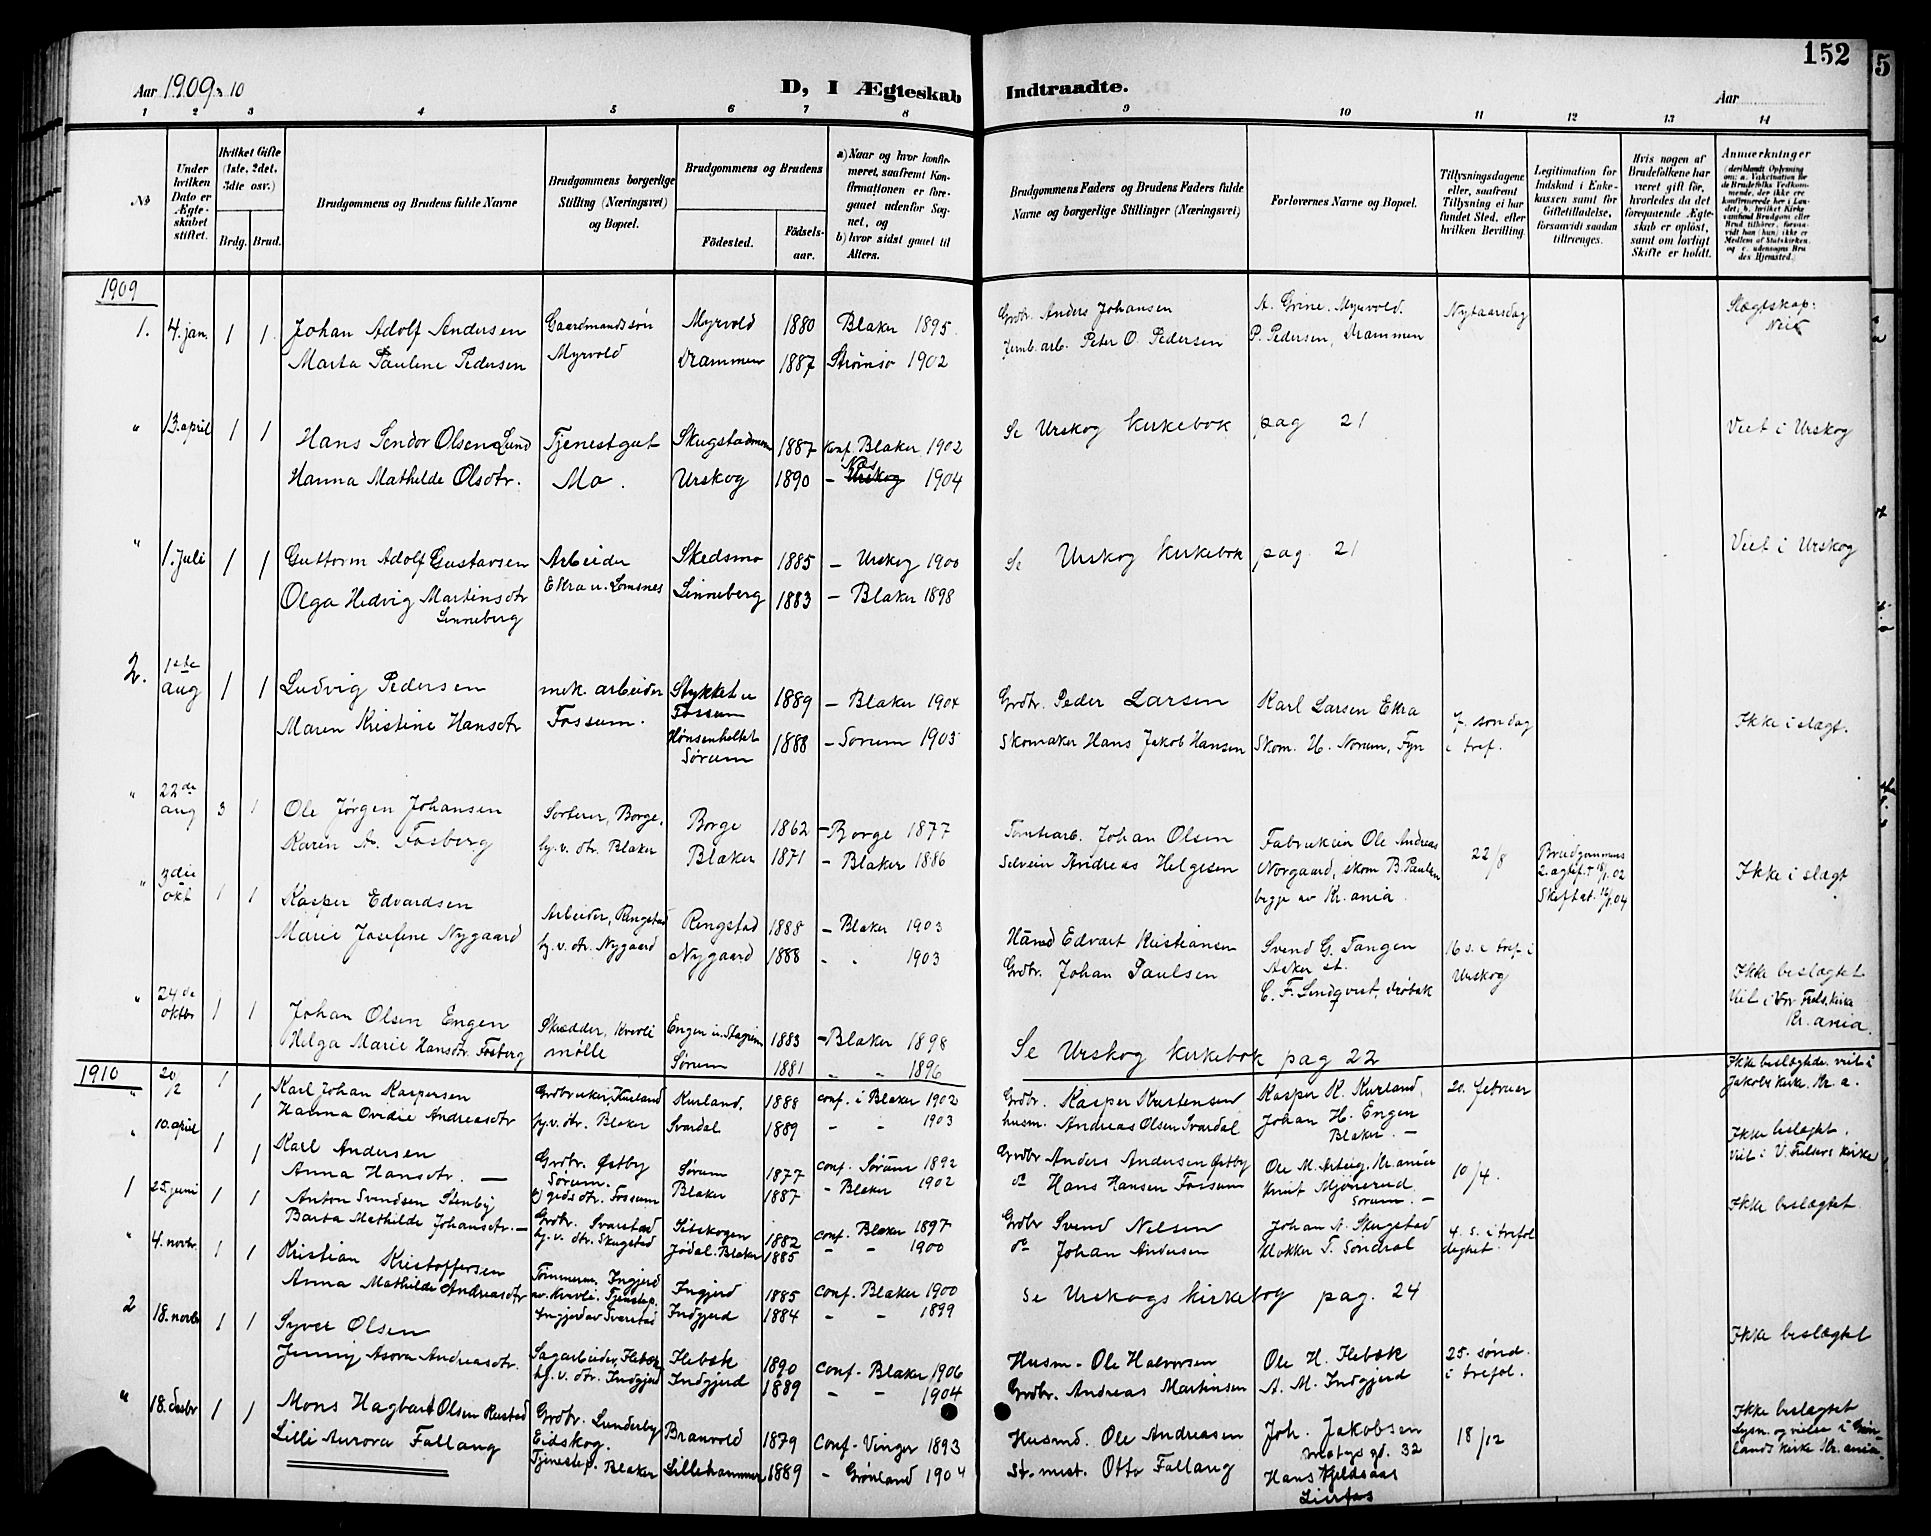 152
5
Aar 1909 & 10
D, I Ægteskab Indtraadte.
Aar
1 2 3 4 5 6 7 8 9 10 11 12 13 14
No
Under hvilken Dato er Ægteskabet stiftet.
Hvilket Gifte (1ste, 2det, 3die osv.)
Brdg. Brud.
Brudgommens og Brudens fulde Navne
Brudgommens borgerlige Stilling (Næringsvei) og Bopæl.
Brudgommens og Brudens
Födested. Födselsaar.
a) Naar og hvor konfirmeret, saafremt Konfirmationen er foregaaet udenfor Sognet, og
b) hvor sidst gaaet til Alters.
Brudgommens Faders og Brudens Faders fulde Navne og borgerlige Stillinger (Næringsvei)
Forlovernes Navne og Bopæl.
Tillysningsdagene eller, saafremt Tillysning ei har fundet Sted, efter hvilken Bevilling.
Legitimation for Indskud i Enkekassen samt for Giftetilladelse, forsaavidt saadan tiltrænges.
Hvis nogen af Brudefolkene har været gift før, hvorledes da det foregaaende Ægteskab er opløst, samt om lovligt Skifte er holdt.
Anmærkninger
1909
1. 4. jan. 1 1 Johan Adolf Andersen Gaardmandssøn Myrvold 1880 Blaker 1895. Grdbr. Anders Johansen A. Grine. Myrvold. Nytaarsdag Slægtskap: Nei
Marta Paulene Pedersen Myrvold Drammen 1887 Strømsø 1902 Jernb. arb. Peter O. Pedersen P. Pedersen, Drammen
" 13. april 1 1 Hans Sendor Olsen Lund Tjenestgut Skugstad 1887 Konf. Blaker 1902 Se Urskog kirkebok pag 21 Viet i Urskog
Hanna Mathilde Olsdtr. Mo. Urskog 1890 – Urskog Nes 1904
" 1. Juli 1 1 Guttorm Adolf Gustavsen Arbeider Skedsmo 1885 – Urskog 1900 Se Urskog kirkebok pag. 21 Viet i Urskog
Olga Hedvig Martinsdtr Ekra u. Lomsnes Linneberg 1883 – Blaker 1898
Linneberg
2. 1ste aug 1 1 Ludvig Pedersen mek. arbeider Stykket u Fossum 1889 – Blaker 1904 Grdbr. Peder Larsen Karl Larsen Ekra 7. søndag i tref. Ikke i slægt.
Maren Kristine Hansdtr Fossum. Hønsenhaltet Sørum 1888 – Sorum 1903 Skomaker Hans Jakob Hansen Skom. H. Norum, Fyn
" 22de aug 3 1 Ole Jørgen Johansen Sorterer, Borge, Borge 1862 – Borge 1877 Tomtearb. Johan Olsen Fabrikeier Ole Andreas 22/8 Brudgommens
Karen A. Fosberg hj. v. dtr. Blaker Blaker 1871 – Blaker 1886 Selveier Andreas Helgesen Norgaard, skom B. Paulsen begge av Kr.ania. Ikke i slægt
" 3die okt 1 1 Kasper Edvardsen Arbeider, Ringstad Ringstad 1888 – Blaker 1903 Edvart Kristiansen Svend G. Tangen 16 s. i tref i
Marie Josefine Nygaard hj. v. dtr. Nygaard Nygaard 1888 - " 1903 Grdbr. Johan Paulsen Asker st. Urskog Ikke beslægtet
C. F. Lindqvist, Drøbak
" 24de oktbr 1 1 Johan Olsen Engen Skrædder, Kverli mølle 1883 – Blaker 1898 Viet i Vor Frels. kirke Kr.ania.
Helga Marie Hansdtr. Fosberg Sørum 1881 " " 1896 Se Urskog kirkebok pag 22
1910
" 20/2 1 1 Karl Johan Kaspersen Grdbruker, Kurland Kurland. 1888 conf. i Blaker 1902 Grdbr. Kasper Kristensen Kasper K. Kurland, 20. februar Ikke beslægtede. viet i Jakobs kirke Kr. a.
Hanna Ovidie Andreasdtr hj. v. dtr. Blaker Svardal 1889 - " 1903 husm. Andreas Olsen Svardal Johan H. Engen Blaker. –
" 10. april 1 1 Karl Andersen Grdbr. Østby Sørum. Sørum 1877 conf. Sørum 1892 Grdbr Anders Andersen Østby 10/4. Ikke beslægtet. viet i V. Frelsers kirke
Anna Hansdtr. – Fossum Blaker 1887 " Blaker 1902 do Hans Hansen Fossum Knut Mjønerud Sorum. –
1 25. juni 1 1 Anton Svendsen Stenby Grdbr. Svarstad 1882 conf. Blaker 1897 Grdbr Svend Nelsen Johan A. Skugstad 4. s. i trefoldighet. Ikke beslægtet.
Barta Mathilde Johansdtr. – hj. v. dtr. Skugstad Jødal. Blaker 1885 - " 1900 do Johan Andersen klokker T. Søndral
" 4. novbr. 1 1 Kristian Kristoffersen Tømmerm. Ingjerd Ingjerd 1885 conf. Blaker 1900 Se Urskogs kirkebog pag. 24
Anna Mathilde Andreasdtr Indgjerd 1884 - " 1899
2 18. novbr 1 1 Syver Olsen Sagarbeider, Flebæk Flebæk 1890 conf. Blaker 1906 Husm. Ole Halvorsen Ole H. Flebæk 25. sønd. i trefol. Ikke beslægtet
Jenny Asora Andreasdtr. hj. v. dtr. Indgjerd Indgjerd 1889 - " 1904 Grdbr. Andreas Martinsen A. M. Indgjerd
" 18. desbr 1 1 Mons Hagbart Olsen Rustad Grdbr. Lunderby Eidskog. Branvold 1879 Conf. Vinger 1893 Husmd. Ole Andreasen Joh. Jakobsen 18/12 Ikke beslægtet
Lilli Aurora Fallang Tjenestep. Blaker Lillehammer 1889 – Grønland 1904 St. mest. Otto Fallang Hans Kjeldsaas Lierfos Lysn. og vielse i Grønlands kirke Kr.ania.